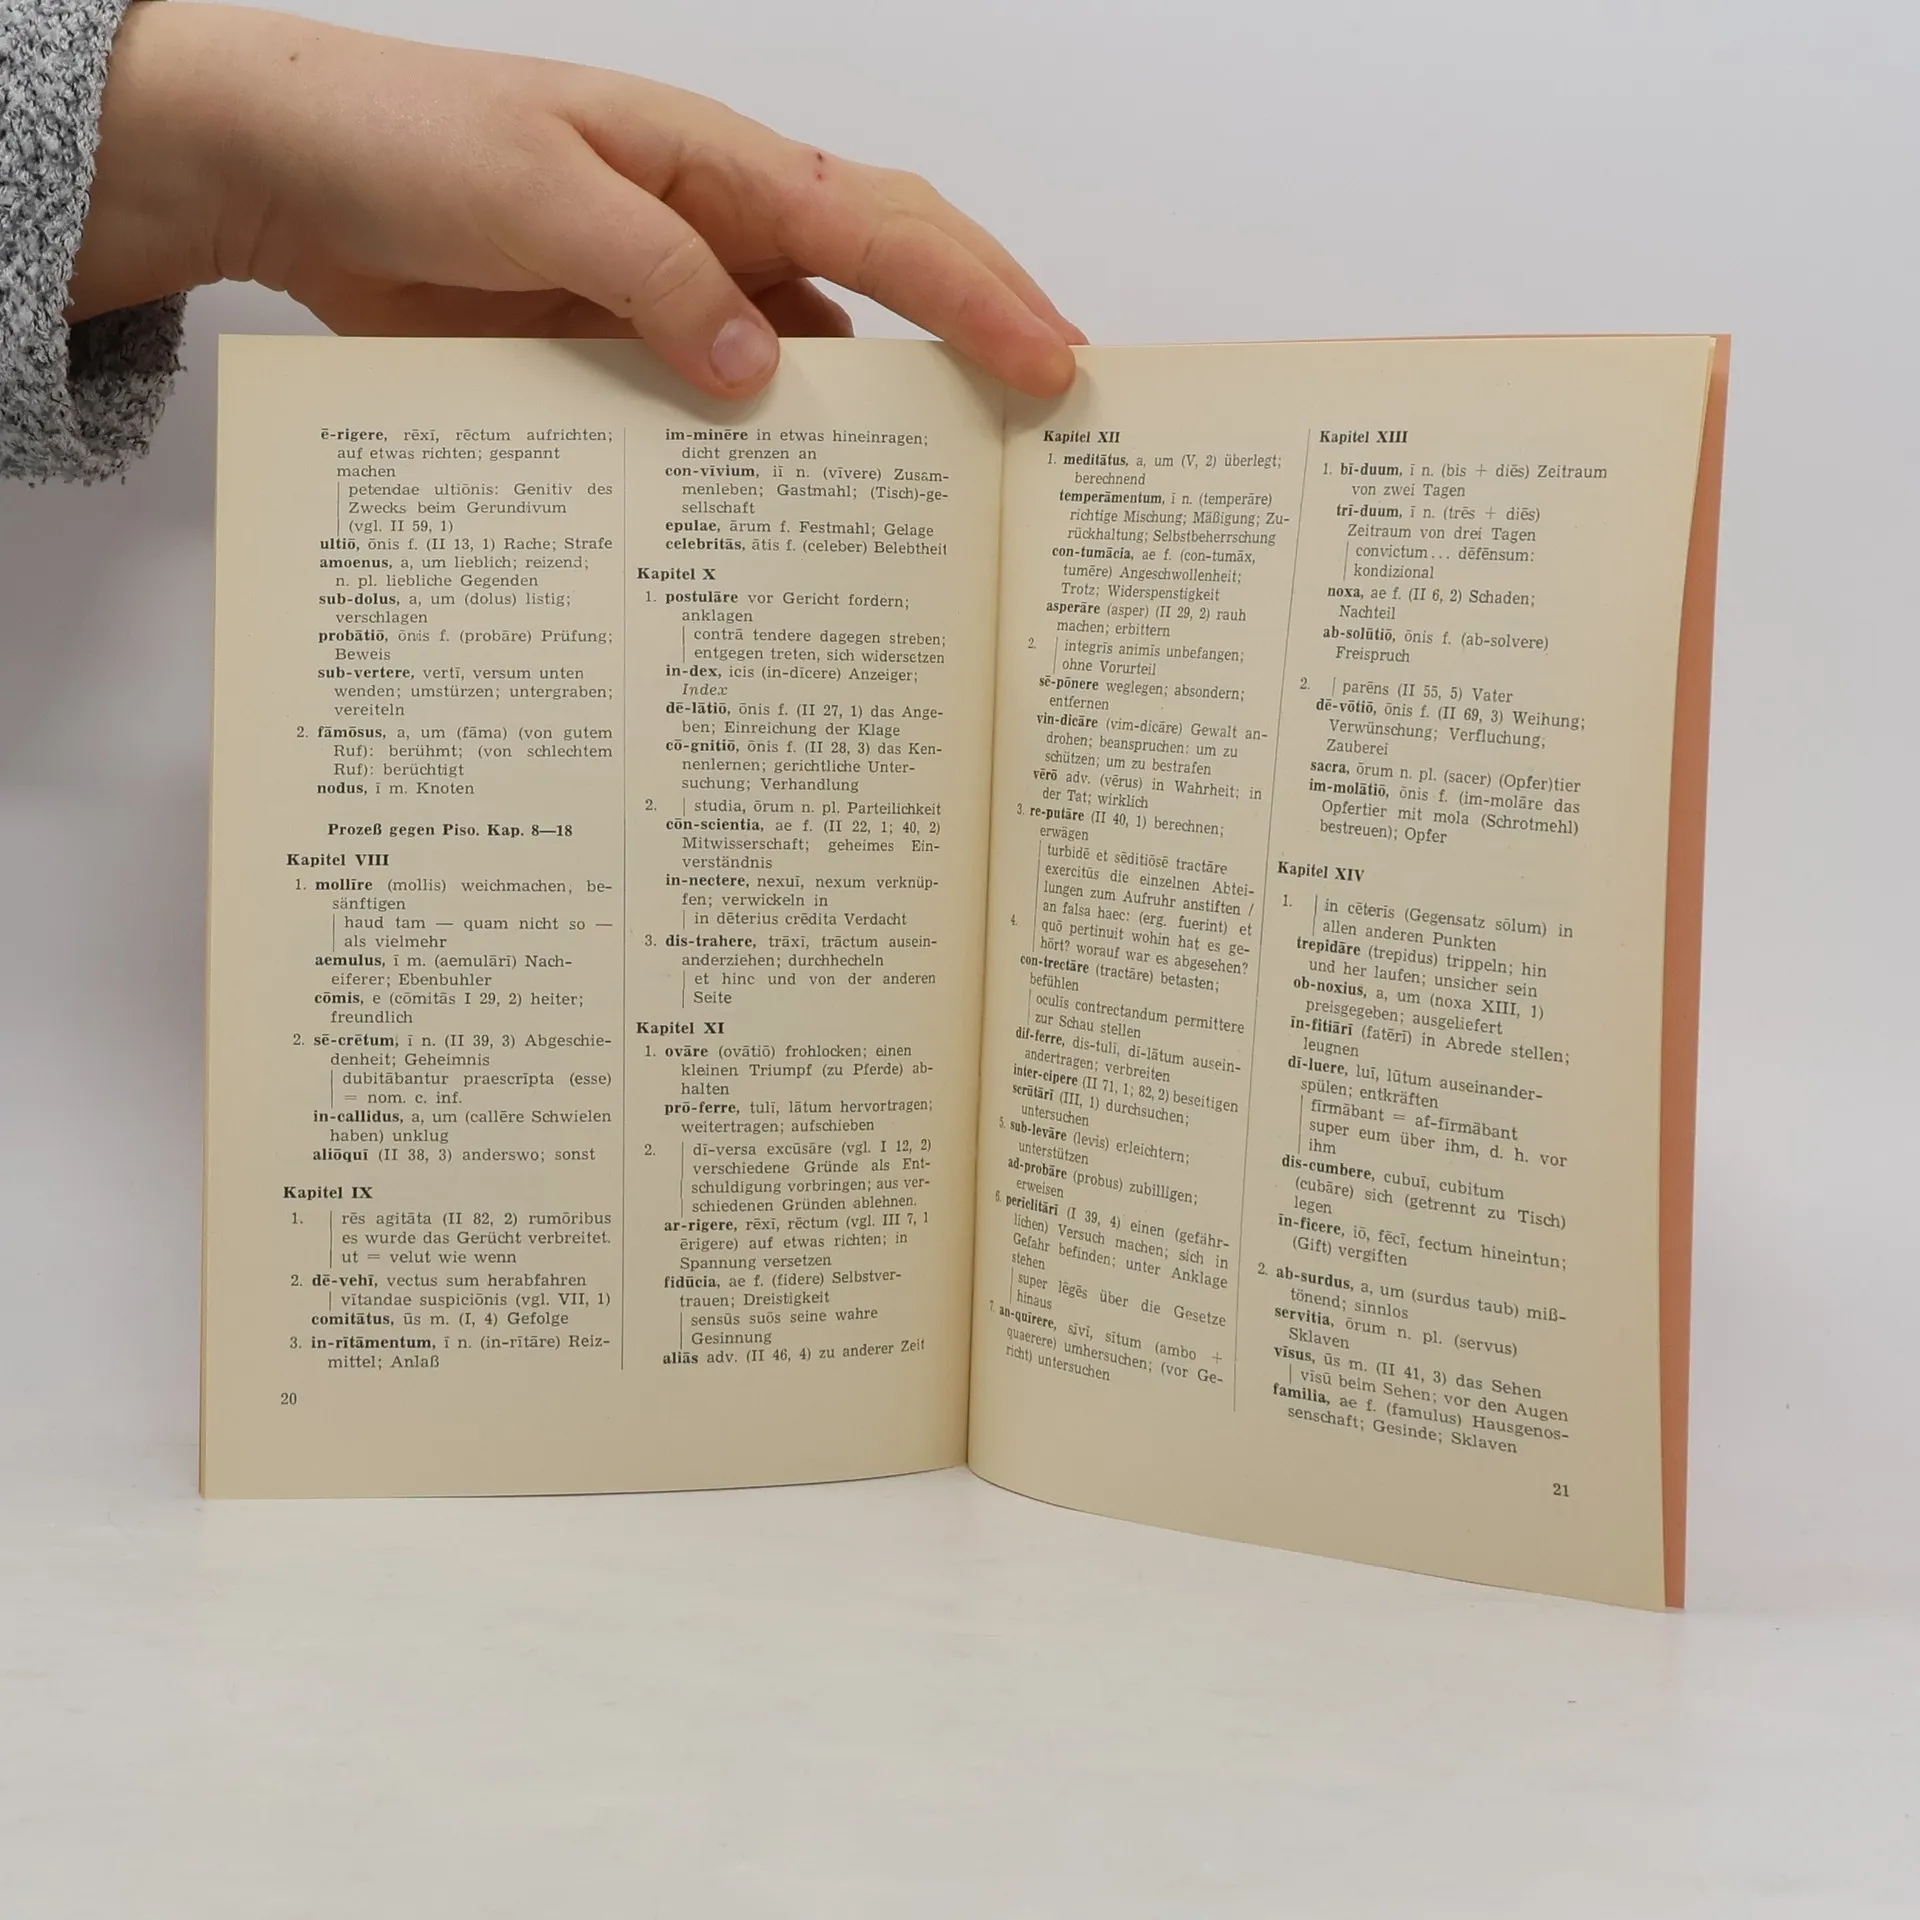 ē-rigere, rēxī, rēctum aufrichten;
auf etwas richten; gespannt
machen
petendae ultiōnis: Genitiv des
Zwecks beim Gerundivum
(vgl. II 59, 1)
ultiō, ōnis f. (II 13, 1) Rache; Strafe
amoenus, a, um lieblich; reizend;
n. pl. liebliche Gegenden
sub-dolus, a, um (dolus) listig;
verschlagen
probātiō, ōnis f. (probāre) Prüfung;
Beweis
sub-vertere, vertī, versum unten
wenden; umstürzen; untergraben;
vereiteln
2. fāmōsus, a, um (fāma) (von gutem
Ruf): berühmt; (von schlechtem
Ruf): berüchtigt
nodus, ī m. Knoten
Prozeß gegen Piso. Kap. 8—18
Kapitel VIII
1. mollīre (mollis) weichmachen, be-
sänftigen
haud tam — quam nicht so —
als vielmehr
aemulus, ī m. (aemulārī) Nach-
eiferer; Ebenbuhler
cōmis, e (cōmitās I 29, 2) heiter;
freundlich
2. sē-crētum, ī n. (II 39, 3) Abgeschie-
denheit; Geheimnis
dubitābantur praescrīpta (esse)
= nom. c. inf.
in-callidus, a, um (callēre Schwielen
haben) unklug
aliōquī (II 38, 3) anderswo; sonst
Kapitel IX
1. rēs agitāta (II 82, 2) rumōribus
es wurde das Gerücht verbreitet.
ut = velut wie wenn
2. dē-vehī, vectus sum herabfahren
vītandae suspiciōnis (vgl. VII, 1)
comitātus, ūs m. (I, 4) Gefolge
3. in-rītāmentum, ī n. (in-rītāre) Reiz-
mittel; Anlaß
20
im-minēre in etwas hineinragen;
dicht grenzen an
con-vīvium, iī n. (vīvere) Zusam-
menleben; Gastmahl; (Tisch)-ge-
sellschaft
epulae, ārum f. Festmahl; Gelage
celebritās, ātis f. (celeber) Belebtheit
Kapitel X
1. postulāre vor Gericht fordern;
anklagen
contrā tendere dagegen streben;
entgegen treten, sich widersetzen
in-dex, icis (in-dīcere) Anzeiger;
Index
dē-lātiō, ōnis f. (II 27, 1) das Ange-
ben; Einreichung der Klage
cō-gnitiō, ōnis f. (II 28, 3) das Ken-
nenlernen; gerichtliche Unter-
suchung; Verhandlung
2. studia, ōrum n. pl. Parteilichkeit
cōn-scientia, ae f. (II 22, 1; 40, 2)
Mitwisserschaft; geheimes Ein-
verständnis
in-nectere, nexuī, nexum verknüp-
fen; verwickeln in
in dēterius crēdita Verdacht
3. dis-trahere, trāxī, trāctum ausein-
anderziehen; durchhecheln
et hinc und von der anderen
Seite
Kapitel XI
1. ovāre (ovātiō) frohlocken; einen
kleinen Triumpf (zu Pferde) ab-
halten
prō-ferre, tulī, lātum hervortragen;
weitertragen; aufschieben
2. dī-versa excūsāre (vgl. I 12, 2)
verschiedene Gründe als Ent-
schuldigung vorbringen; aus ver-
schiedenen Gründen ablehnen.
ar-rigere, rēxī, rēctum (vgl. III 7, 1
ērigere) auf etwas richten; in
Spannung versetzen
fidūcia, ae f. (fīdere) Selbstver-
trauen; Dreistigkeit
sensūs suōs seine wahre
Gesinnung
aliās adv. (II 46, 4) zu anderer Zeit
Kapitel XII
1. meditātus, a, um (V, 2) überlegt;
berechnend
temperāmentum, ī n. (temperāre)
richtige Mischung; Mäßigung; Zu-
rückhaltung; Selbstbeherrschung
con-tumācia, ae f. (con-tumāx,
tumēre) Angeschwollenheit;
Trotz; Widerspenstigkeit
asperāre (asper) (II 29, 2) rauh
machen; erbittern
2. integrīs animīs unbefangen;
ohne Vorurteil
sē-pōnere weglegen; absondern;
entfernen
vin-dicāre (vim-dicāre) Gewalt an-
drohen; beanspruchen: um zu
schützen; um zu bestrafen
vērō adv. (vērus) in Wahrheit; in
der Tat; wirklich
3. re-putāre (II 40, 1) berechnen;
erwägen
turbidē et sēditiōsē tractāre
exercitūs die einzelnen Abtei-
lungen zum Aufruhr anstiften /
an falsa haec: (erg. fuerint) et
4. quō pertinuit wohin hat es ge-
hört? worauf war es abgesehen?
con-trectāre (tractāre) betasten;
befühlen
oculīs contrectandum permittere
zur Schau stellen
dif-ferre, dis-tulī, dī-lātum ausein-
andertragen; verbreiten
inter-cipere (II 71, 1; 82, 2) beseitigen
scrūtārī (III, 1) durchsuchen;
untersuchen
5. sub-levāre (levis) erleichtern;
unterstützen
ad-probāre (probus) zubilligen;
erweisen
6. perīclitārī (I 39, 4) einen (gefähr-
lichen) Versuch machen; sich in
Gefahr befinden; unter Anklage
stehen
super lēgēs über die Gesetze
hinaus
7. an-quīrere, sīvī, sītum (ambo +
quaerere) umhersuchen; (vor Ge-
richt) untersuchen
Kapitel XIII
1. bī-duum, ī n. (bis + diēs) Zeitraum
von zwei Tagen
trī-duum, ī n. (trēs + diēs)
Zeitraum von drei Tagen
convictum... dēfēnsum:
kondizional
noxa, ae f. (II 6, 2) Schaden;
Nachteil
ab-solūtiō, ōnis f. (ab-solvere)
Freispruch
2. parēns (II 55, 5) Vater
dē-vōtiō, ōnis f. (II 69, 3) Weihung;
Verwünschung; Verfluchung;
Zauberei
sacra, ōrum n. pl. (sacer) (Opfer)tier
im-molātiō, ōnis f. (im-molāre das
Opfertier mit mola (Schrotmehl)
bestreuen); Opfer
Kapitel XIV
1. in cēterīs (Gegensatz sōlum) in
allen anderen Punkten
trepidāre (trepidus) trippeln; hin
und her laufen; unsicher sein
ob-noxius, a, um (noxa XIII, 1)
preisgegeben; ausgeliefert
īn-fitiārī (fatērī) in Abrede stellen;
leugnen
dī-luere, luī, lūtum auseinander-
spülen; entkräften
fīrmābant = af-fīrmābant
super eum über ihm, d. h. vor
ihm
dis-cumbere, cubuī, cubitum
(cubāre) sich (getrennt zu Tisch)
legen
īn-ficere, iō, fēcī, fectum hineintun;
(Gift) vergiften
2. ab-surdus, a, um (surdus taub) miß-
tönend; sinnlos
servitia, ōrum n. pl. (servus)
Sklaven
vīsus, ūs m. (II 41, 3) das Sehen
vīsū beim Sehen; vor den Augen
familia, ae f. (famulus) Hausgenos-
senschaft; Gesinde; Sklaven
21